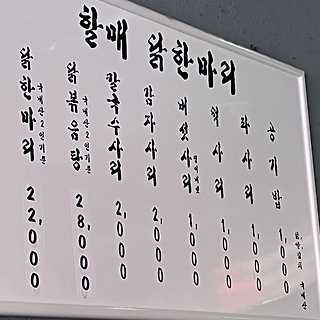 할매 닭한마리
닭한마리 국내산 2인기준 22,000
닭볶음탕 국내산 2인기준 28,000
칼국수사리 2,000
감자사리 2,000
버섯사리 1,000
떡사리 1,000
라사리 1,000
공기밥 1,000
국내산